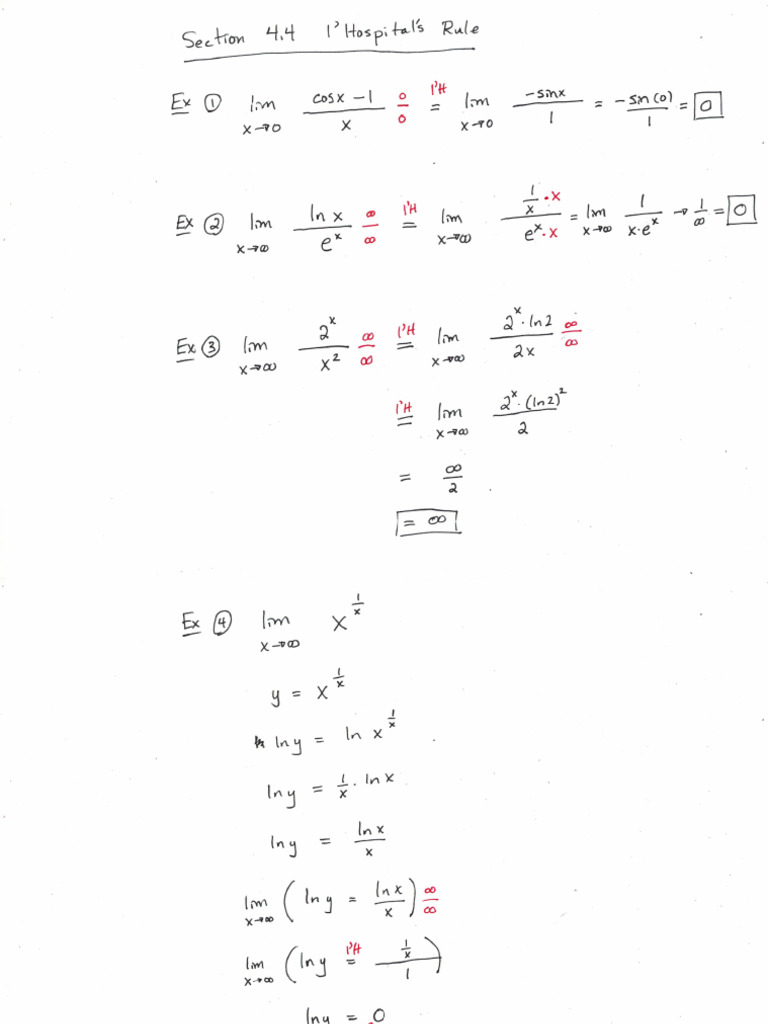 Section 4.4 l'Hospital's Rule
Ex ① lim x→0 (cosx −1)/x 0/0 l'H = lim x→0 (−sinx)/1 = −sin(0)/1 = 0
Ex ② lim x→∞ ln x/e^x ∞/∞ l'H = lim x→∞ (1/x ·x)/(e^x ·x) = lim x→∞ 1/(x·e^x) → 1/∞ = 0
Ex ③ lim x→∞ 2^x/x^2 ∞/∞ l'H = lim x→∞ (2^x · ln2)/(2x) ∞/∞
l'H = lim x→∞ (2^x · (ln2)^2)/2
= ∞/2
= ∞
Ex ④ lim x→∞ x^(1/x)
y = x^(1/x)
ln y = ln x^(1/x)
ln y = 1/x · ln x
ln y = ln x/x
lim x→∞ (ln y = ln x/x) ∞/∞
lim x→∞ (ln y l'H = (1/x)/1)
ln y = 0